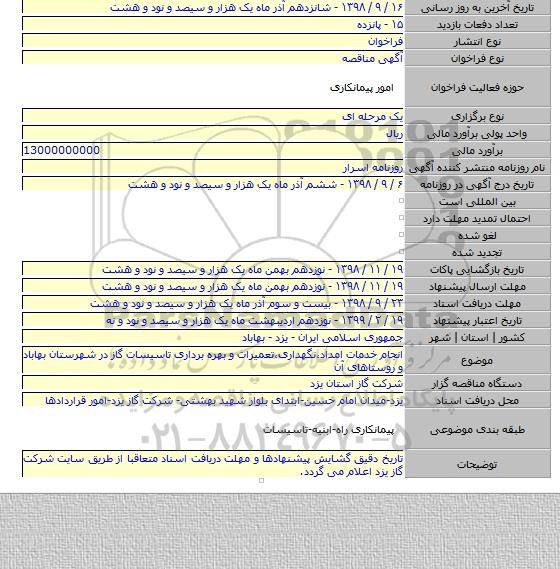 تاریخ آخرین به روز رسانی ۱۶ / ۹ / ۱۳۹۸ - شانزدهم آذر ماه یک هزار و سیصد و نود و هشت
تعداد دفعات بازدید ۱۵ - پانزده
نوع انتشار فراخوان
نوع فراخوان آگهی مناقصه
حوزه فعالیت فراخوان امور پیمانکاری
نوع برگزاری یک مرحله ای
واحد پولی برآورد مالی ریال
برآورد مالی 13000000000
نام روزنامه منتشر کننده آگهی روزنامه اسرار
تاریخ درج آگهی در روزنامه ۶ / ۹ / ۱۳۹۸ - ششم آذر ماه یک هزار و سیصد و نود و هشت
بین المللی است
احتمال تمدید مهلت دارد
لغو شده
تجدید شده
تاریخ بازگشایی پاکات ۱۹ / ۱۱ / ۱۳۹۸ - نوزدهم بهمن ماه یک هزار و سیصد و نود و هشت
مهلت ارسال پیشنهاد ۱۹ / ۱۱ / ۱۳۹۸ - نوزدهم بهمن ماه یک هزار و سیصد و نود و هشت
مهلت دریافت اسناد ۲۳ / ۹ / ۱۳۹۸ - بیست و سوم آذر ماه یک هزار و سیصد و نود و هشت
تاریخ اعتبار پیشنهاد ۱۹ / ۲ / ۱۳۹۹ - نوزدهم اردیبهشت ماه یک هزار و سیصد و نود و نه
کشور | استان | شهر جمهوری اسلامی ایران - یزد - بهاباد
موضوع انجام خدمات امداد،نگهداری،تعمیرات و بهره برداری تاسیسات گاز در شهرستان بهاباد
و روستاهای آن
دستگاه مناقصه گزار شرکت گاز استان یزد
محل دریافت اسناد یزد-میدان امام حسین-ابتدای بلوار شهید بهشتی- شرکت گاز یزد-امور قراردادها
طبقه بندی موضوعی پیمانکاری راه-ابنیه-تاسیسات
توضیحات تاریخ دقیق گشایش پیشنهادها و مهلت دریافت اسناد متعاقبا از طریق سایت شرکت
گاز یزد اعلام می گردد.
۰۲۱-۸۸۳۴۹۶۷۰-۵